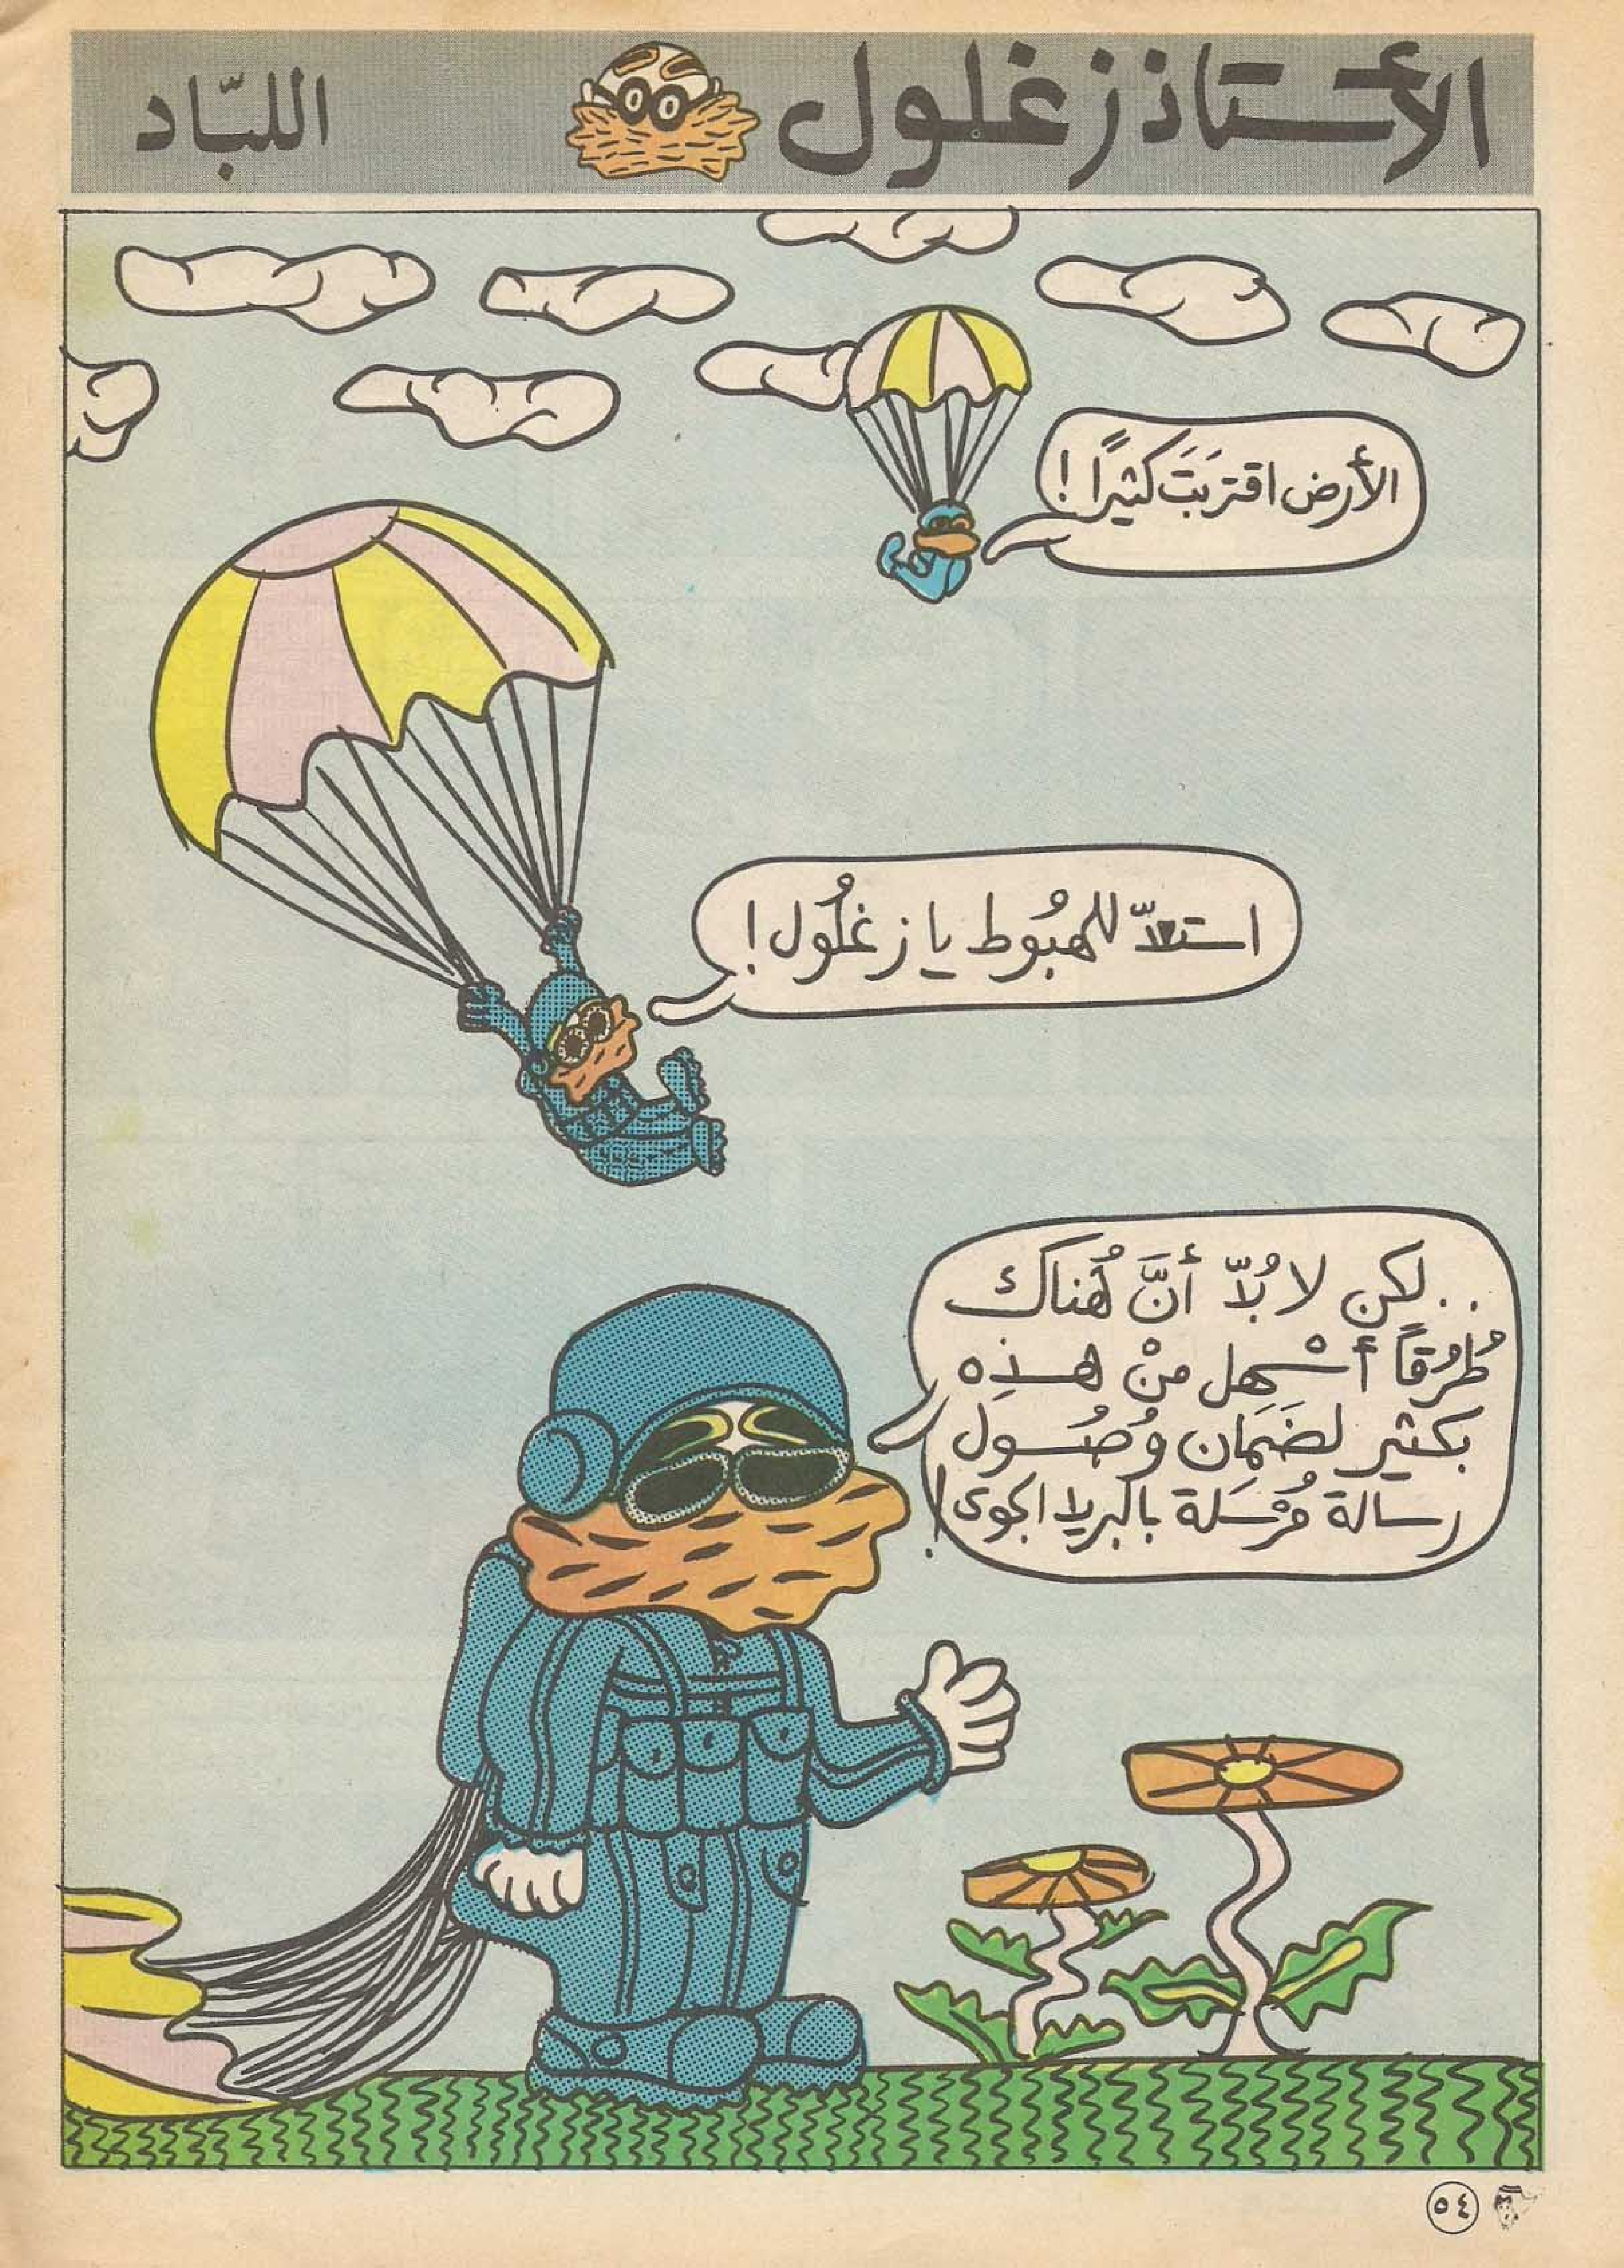 الأستاذ زغلول
اللبّاد
الأرض اقترَبَتَ كثيرًا !
استعدّ للهبُوط يا زغلُول !
..لكن لا بُدّ أنَّ هُناك
طُرُقاً أسْهل منْ هذِه
بكثير لضَمَان وُصُول
رسالة مُرْسَلة بالبريد الجوى !
٥٤